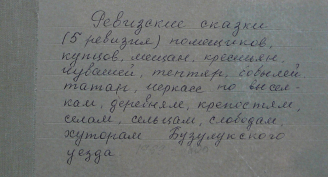 Ревизские сказки
(5 ревизия) помещиков,
купцов, мещан, крестьян,
чувашей, тептяр, бобылей,
татар, черкасс по высел-
кам, деревням, крепостям,
селам, сельцам, слободам,
хуторам Бузулукского
уезда